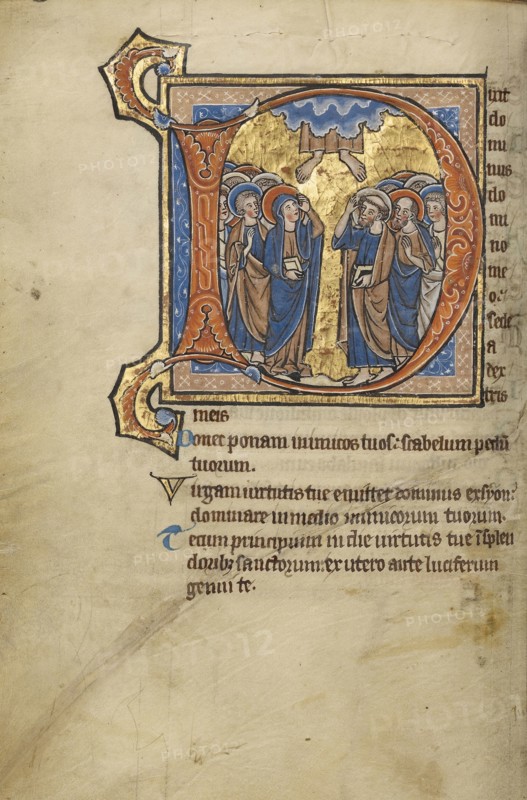 D
ixit
do
mi
nus
do
mi
no
me
o:
sede
a
dex
tris
meis
Donec ponam inimicos tuos: scabelum pedū
tuorum.
Virgam uirtutis tue emittet dominus ex syon:
dominare in medio inimicorum tuorum.
Tecum principium in die uirtutis tue ī splen
doribȝ sanctorum: ex utero ante luciferum
genui te.
PHOTO12